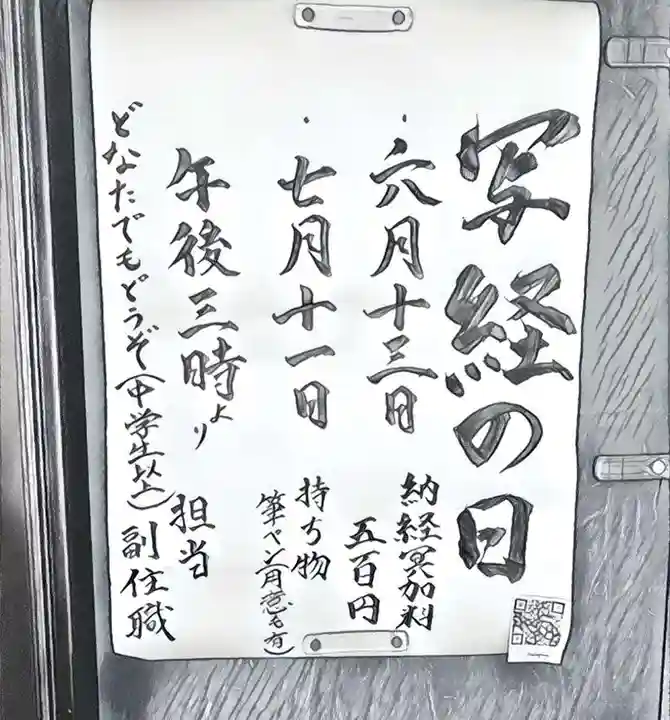 写経の日
・六月十三日
・七月十一日
午後三時より
どなたでもどうぞ(中学生以上)
納経冥加料
五百円
持ち物
筆ペン(用意も有)
担当
副住職